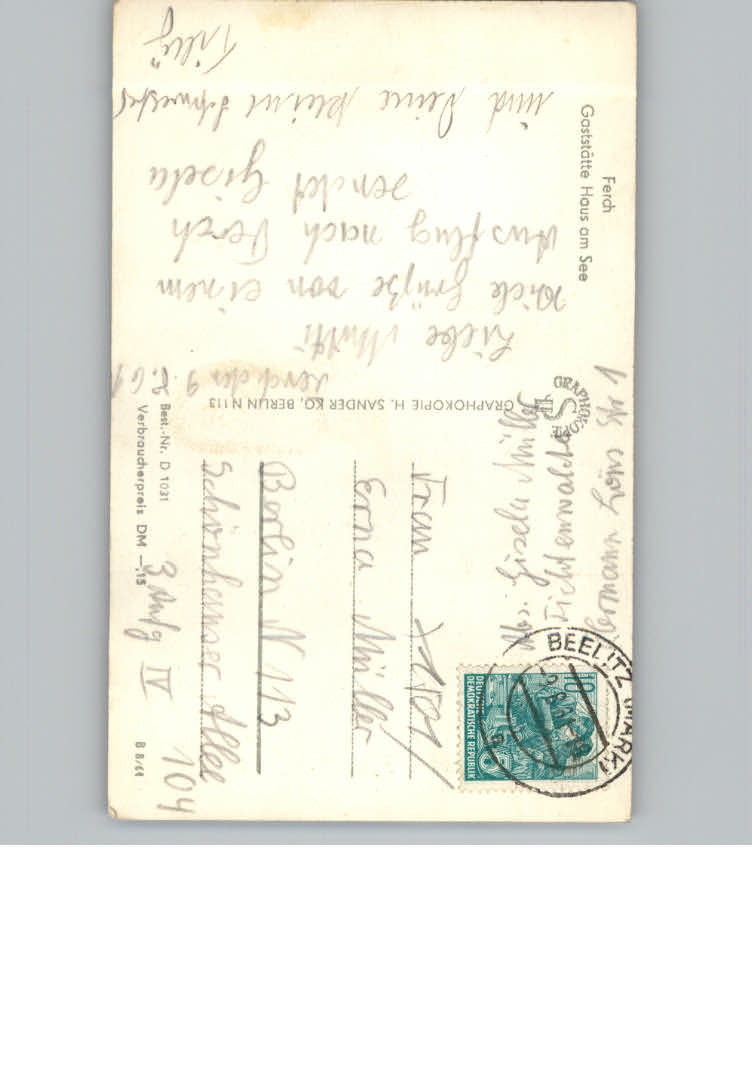 Ferch
Gaststätte Haus am See
Ferch den 9. 8. 61
Liebe Mutti
Viele Grüße von einem
Ausflug nach Ferch
sendet Gisela
und Deine kleine Schwester
GRAPHOKOPIE H. SANDER KG, BERLIN N 113
GRAPHOKOPIE
HS
Abs. Gisela Müller
Fichtenwalde
Hermann Löns Str 1
BEELITZ (MARK)
10
DEUTSCHE
DEMOKRATISCHE REPUBLIK
Frau
Erna Müller
Berlin N 113
Schönhauser Allee
104
3 Aufg IV
Best.-Nr. D 1031
Verbraucherpreis DM -,15
B 8/61